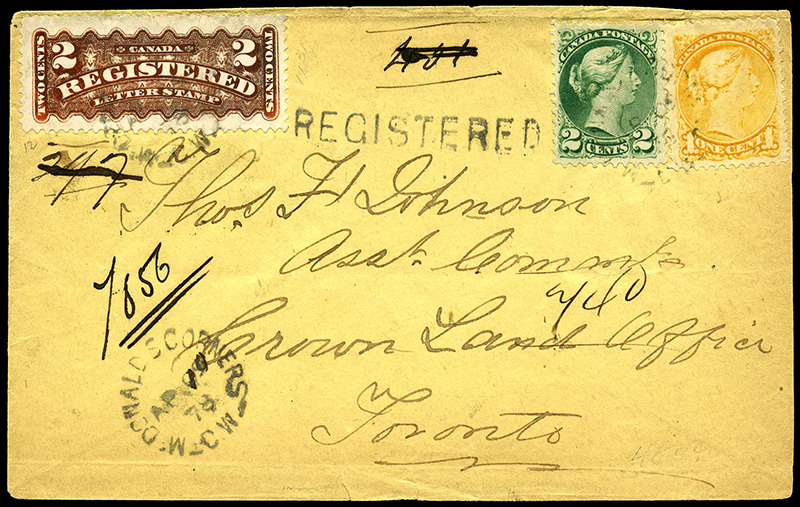 2 CANADA 2
TWO CENTS REGISTERED TWO CENTS
LETTER STAMP
REGISTERED
CANADA POSTAGE
2 CENTS 2
CANADA POSTAGE
ONE CENT
Thos. F. Johnson
Asst. Commr.
7856
740
Crown Land Office
Toronto
McDONALD'S CORNERS